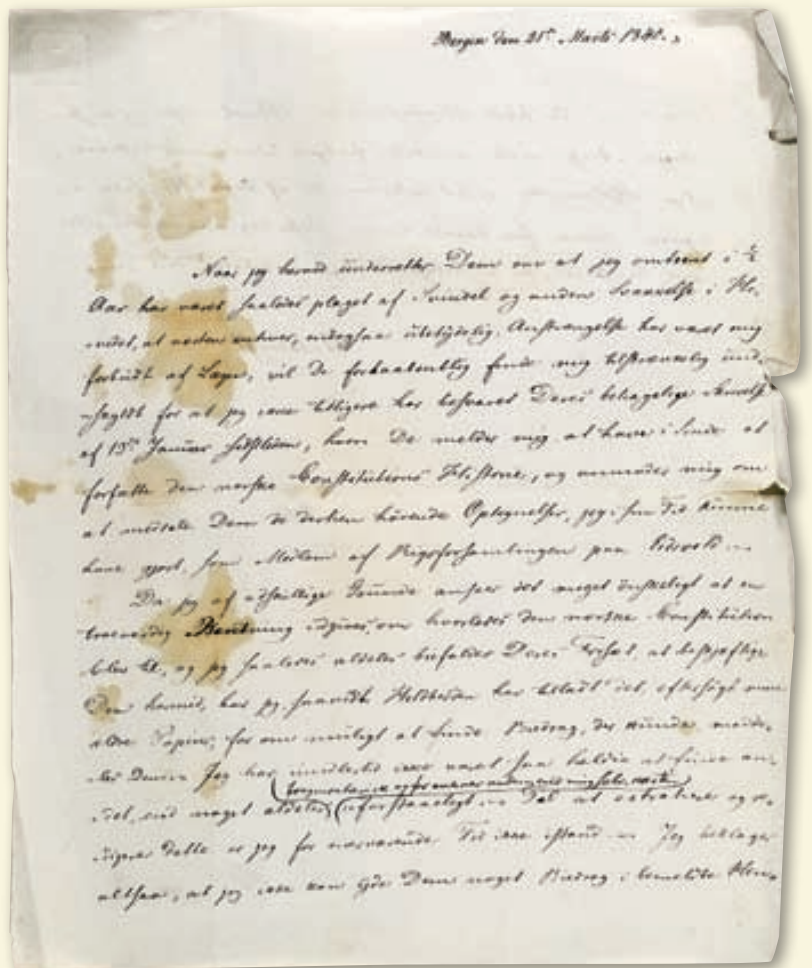 Bergen den 21de Marts 1841.
Naar jeg herved underretter Dem om at jeg omtrent i ½
Aar har været saaledes plaget af Svindel og anden Svævelse i Ho-
vedet, at næsten enhver, endogsaa ubetydelig, Anstrængelse har været mig
forbudt af Læge, vil De forhaabentlig finde mig tilstrækkelig und-
skyldt for at jeg ikke tidligere har besvaret Deres behagelige Skrivelse
af 13de Januar sidstleden, hvori De melder mig at have i Sinde at
forfatte den norske Constitutions Historie, og anmoder mig om
at meddele Dem de dertil hørende Optegnelser, jeg i sin Tid kunne
have gjort, som Medlem af Rigsforsamlingen paa Eidsvold.
Da jeg af adskillige Grunde anseer det meget ønskeligt at en
troværdig Beretning udgives om hvorledes den norske Constitution
blev til, og jeg saaledes aldeles bifalder Deres Forsæt, at beskjæftige
Dem hermed, har jeg, saavidt Helbreden har tilladt det, eftersøgt mine
ældre Papirer, for om muligt at finde Bidrag, der kunde medde-
les Dem. Jeg har imidlertid ikke været saa heldig at finde an-
fragmentarisk og for enhver anden end mig selv
det, end noget aldeles uforstaaeligt. Det at extrahere og re-
digere dette er jeg for nærværende Tid ikke istand. Jeg beklager
altsaa, at jeg ikke kan give Dem noget Bidrag i bemeldte Hen-